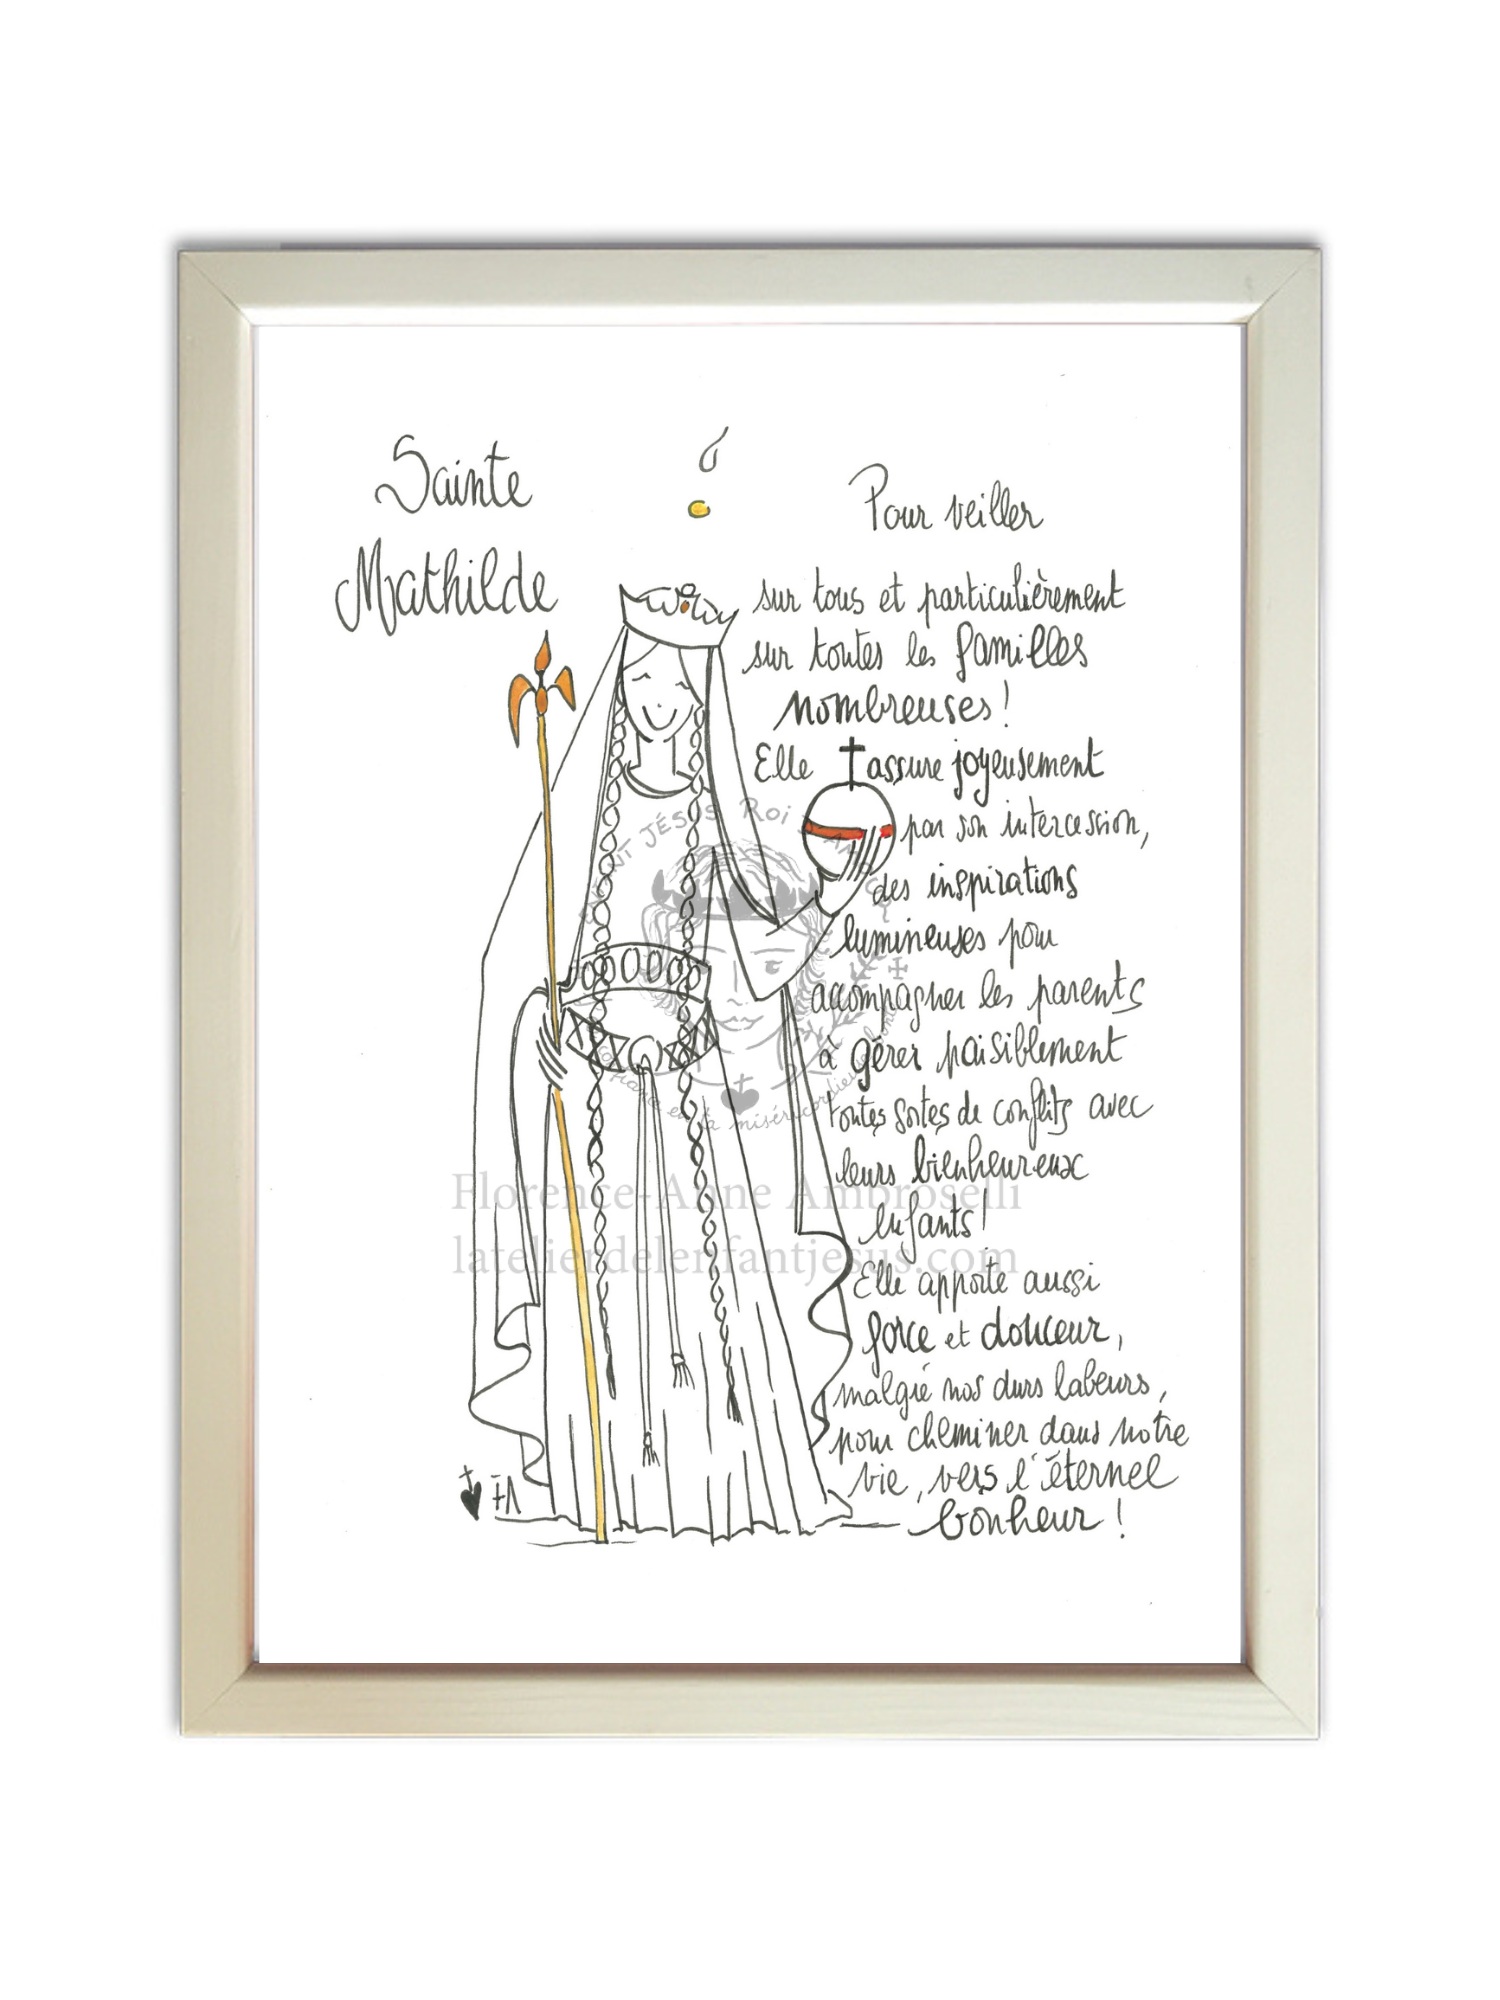 Sainte
Mathilde
Pour veiller
sur tous et particulièrement
sur toutes les familles
nombreuses!
Elle assure joyeusement
par son intercession,
des inspirations
lumineuses pour
accompagner les parents
à gérer paisiblement
toutes sortes de conflits avec
leurs bienheureux
enfants!
Elle apporte aussi
force et douceur,
malgré nos durs labeurs,
pour cheminer dans notre
vie, vers l'éternel
bonheur!
FA
JÉSUS ROI
confiance en la miséricordieuse
Florence-Anne Ambroselli
latelierdelenfantjesus.com